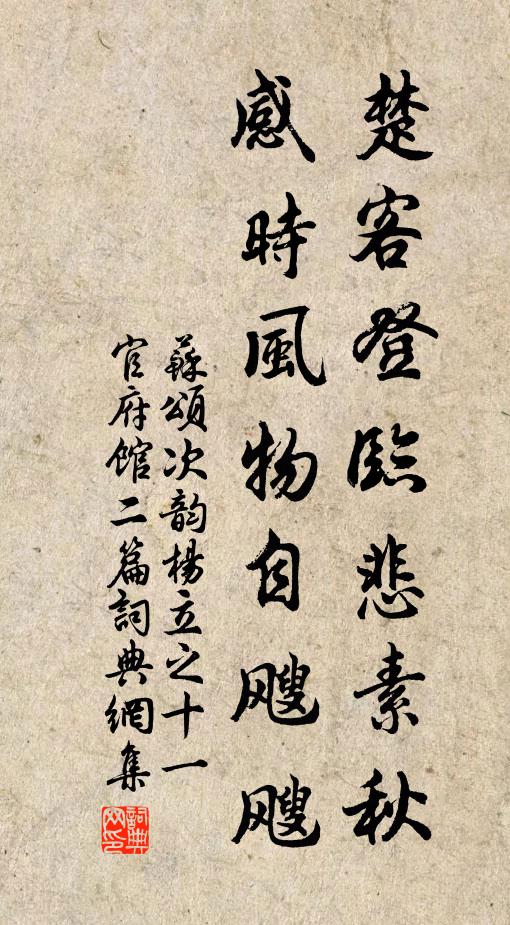 楚客登臨悲素秋
感時風物自颼颼
蘇頌次韵楊立之十一
官府館二篇詞典網集
詞典网印